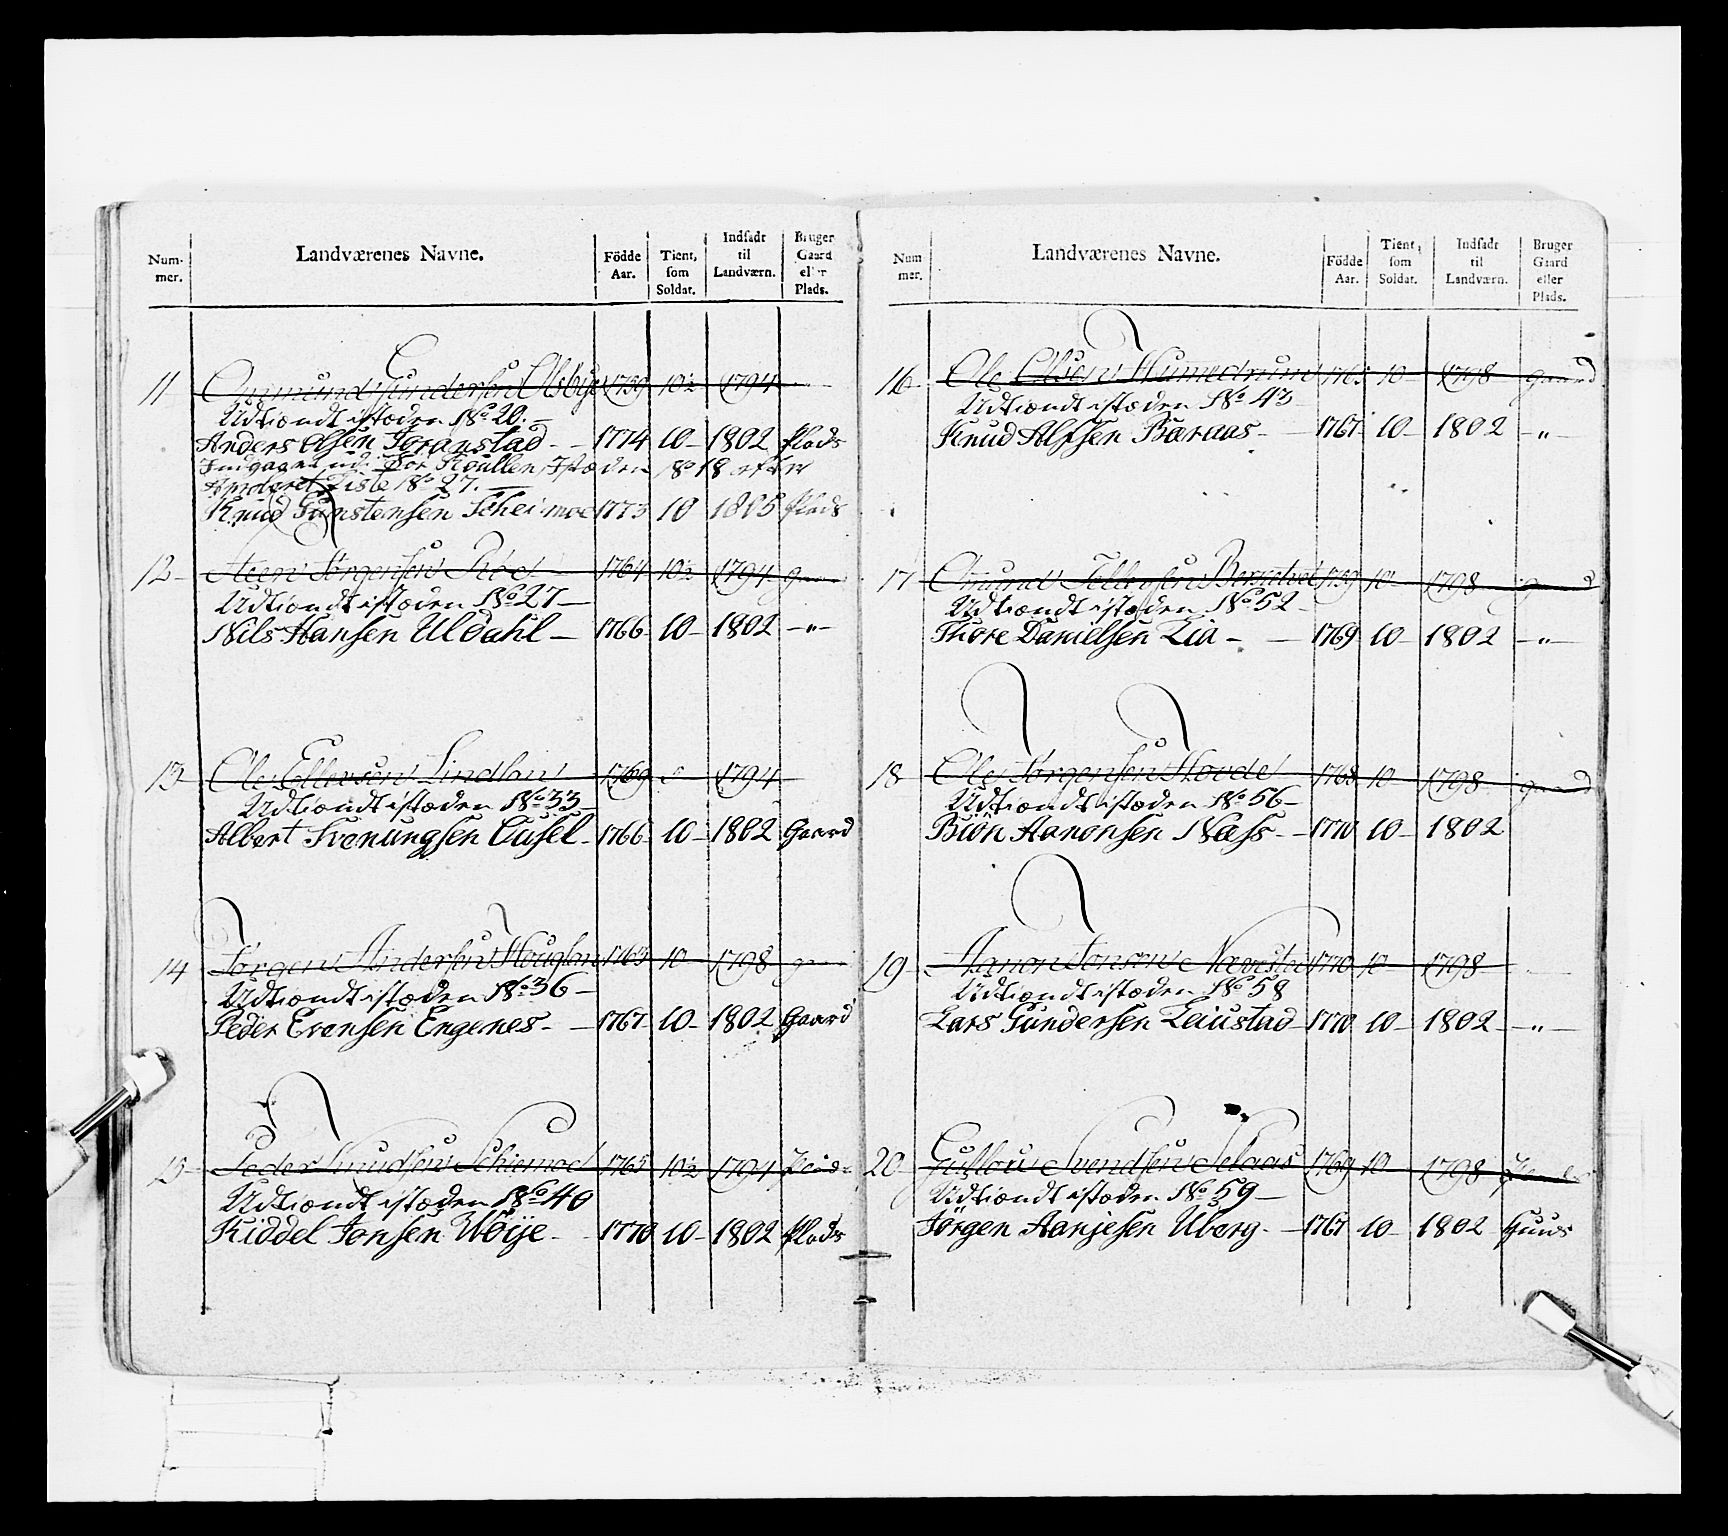 Num-
mer.
Landværenes Navne.
Födde
Aar.
Tient,
som
Soldat.
Indsadt
til
Landværn.
Bruger
Gaard
eller
Plads.
11 Gunderſen 10½ 1794
Udtiændt iſtæden No 20.
Anders Olsen Joranstad 1774 10 1802 Plads
No 18 efter
Liste No 27.
Knud 1773 10 1805 Plads
12 Jørgenſen 1764 10½ 1794
Udtiændt iſtæden No 27
Nils Hansen Uldahl 1766 10 1802 "
13 Ole Ellevsen 1769 1794
Udtiændt iſtæden No 33
Albert Svenungsen Ausel 1766 10 1802 Gaard
14 Jørgen Anderſen 1763 10 1798
Udtiændt iſtæden No 36
Peder Evensen Engenes 1767 10 1802 Gaard
15 Peder Knudſen Schiemoe 1765 10½ 1794
Udtiændt iſtæden No 40
Kiddel Jonsen Wöije 1770 10 1802 Plads
Num
mer.
Landværenes Navne.
Födde
Aar.
Tient,
som
Soldat.
Indsadt
til
Landværn.
Bruger
Gaard
eller
Plads.
16 Ole Olsen 1765 10 1798 Gaard
Udtiændt iſtæden No 43
Knud Alfsen Baraas 1767 10 1802 "
17 10 1798
Udtiændt iſtæden No 52
Thore Danielsen Lia 1769 10 1802 "
18 Ole Jørgenſen Hovde 1768 10 1798 Gaard
Udtiændt iſtæden No 56
Biön Aanonsen Næss 1770 10 1802
19 Aanon Jonsen 1770 10 1798
Udtiændt iſtæden No 58
Lars Gundersen Leiustad 1770 10 1802 "
20 Gustow Svendſen Selaas 1769 10 1798
Udtiændt iſtæden No 59
Jörgen Aanjesen Uberg 1767 10 1802 Huus